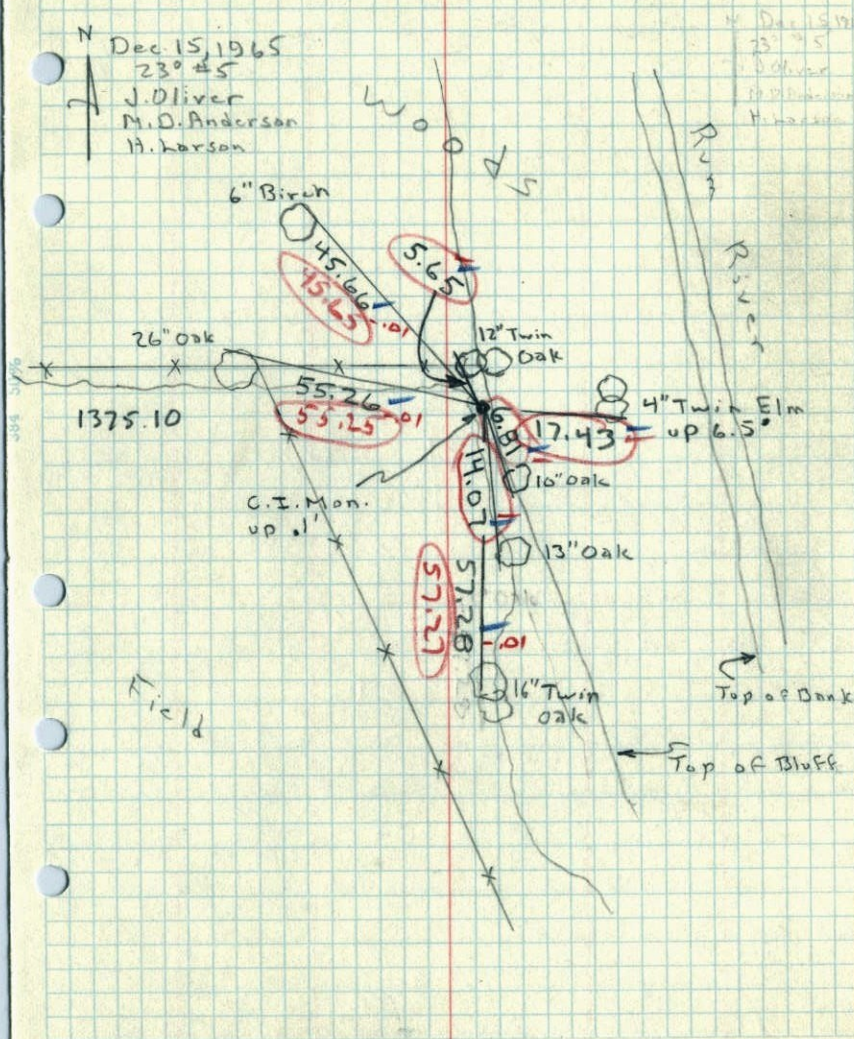 N
Dec. 15, 1965
23° #5
J. Oliver
M. D. Anderson
H. Larson
Woods
Rum River
6" Birch
45.66
45.65
-.01
5.65
12" Twin
Oak
26" Oak
55.26
55.25
-.01
1375.10
4" Twin Elm
up 6.5'
17.43
6.81
10" Oak
14.07
C.I. Mon.
up .1'
13" Oak
57.28
57.27
-.01
16" Twin
Oak
Field
Top of Bank
Top of Bluff